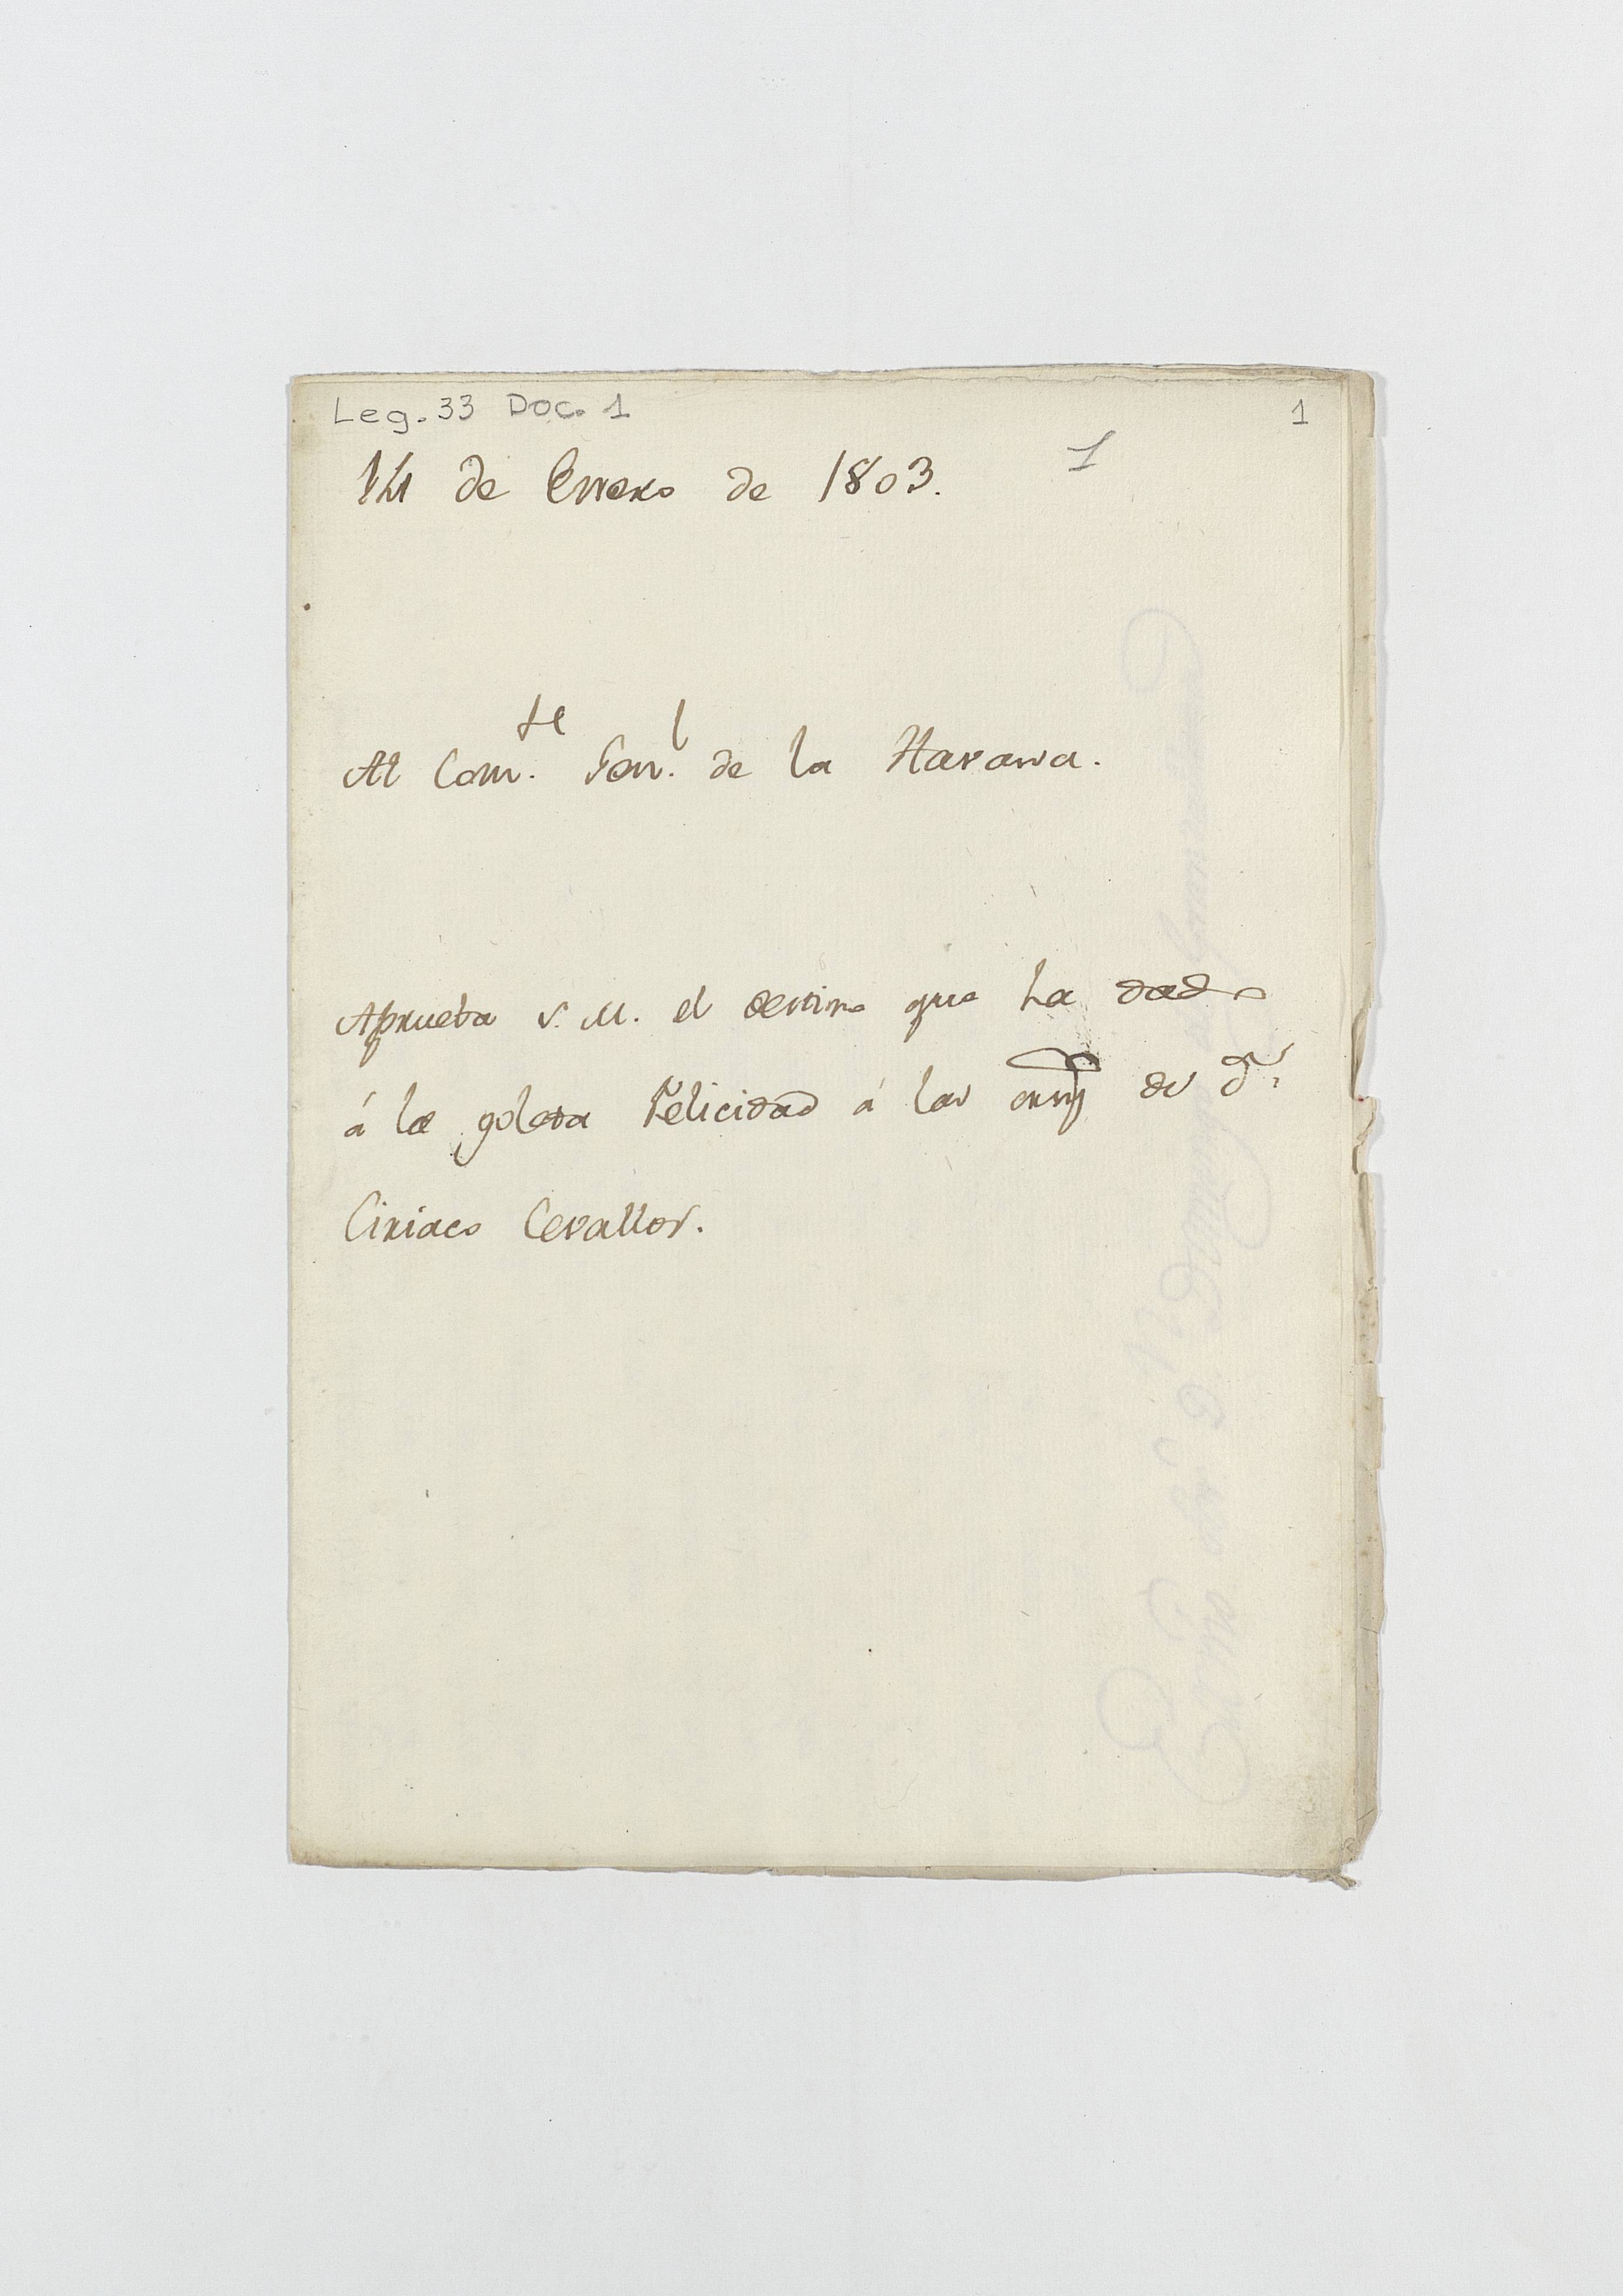 Leg. 33 Doc. 1
1
1
14 de Enero de 1803.
Al Com.te Gen.l de la Havana.
Aprueba S. M. el destino que ha dado
á la goleta Felicidad á las orns de Dn
Ciriaco Cevallos.